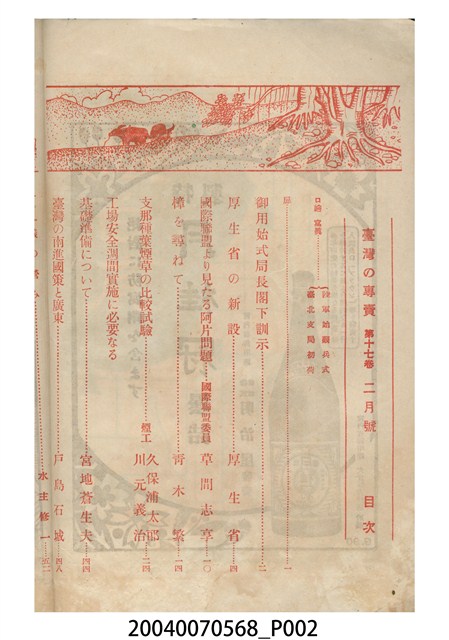 臺灣の專賣 第十七卷 二月號 目次
口繪寫眞
陸軍始觀兵式
臺北支局初荷
扉……一
御用始式局長閣下訓示……二
厚生省の新設……厚生省…四
國際聯盟より見たる阿片問題…國際聯盟委員 草間志亨…一〇
樟を尋ねて……青木繁…一四
支那種葉煙草の比較試驗……久保浦太郎 川元義治…二四
工場安全週間實施に必要なる
基礎準備について……宮地蒼生夫…四四
臺灣の南進國策と廣東……戸島石城…四八
水主修一…五二
20040070568_P002